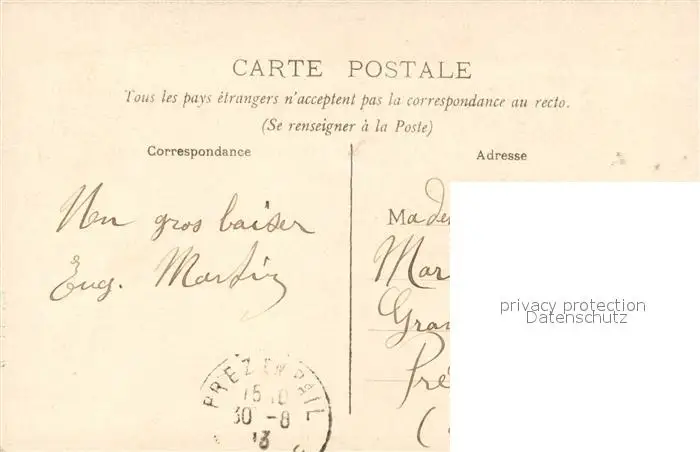 CARTE POSTALE
Tous les pays étrangers n'acceptent pas la correspondance au recto.
(Se renseigner à la Poste)
Correspondance
Adresse
Un gros baiser
Eug. Martin
Made
Mar
Gran
Pré
(
privacy protection
Datenschutz
PREZ EN PAIL
15
30 -8
13